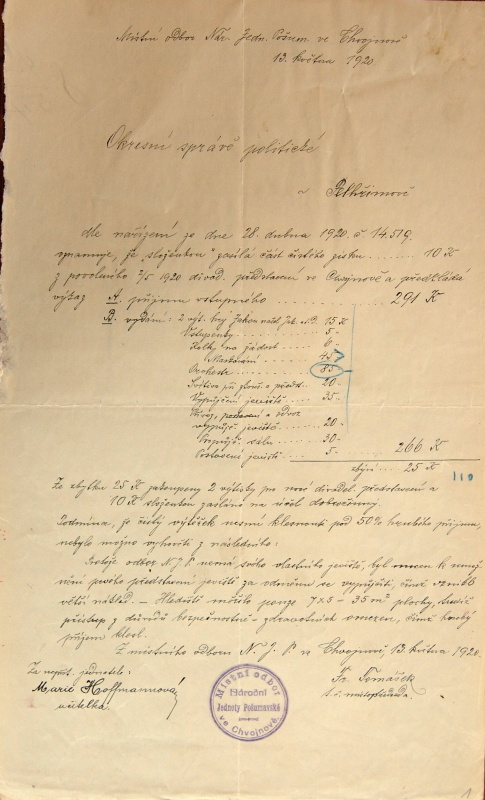 Místní odbor Nár. Jedn. Pošum. ve Chvojnově
13. května 1920
Okresní správě politické
v Pelhřimově
Dle nařízení ze dne 28. dubna 1920 č 14.519.
oznamuje, že složenkou zasílá část čistého zisku 10 K
z povoleného 2/5 1920 divad. představení ve Chvojnově a předkládá
výkaz A. příjmu vstupného 291 K
B. vydání: 15 K
Vstupenky 5 -
Kolky na žádost 6 -
Maskování 45
Orchestr 85
Světivo při zkouš. a předst. 20 -
Vypůjčení jeviště 35 -
Dovoz, postavení a odvoz
vypůjč. jeviště 20 -
Propůjč. sálu 30 -
Postavení jeviště 5 - 266 K
zbývá 25 K
110
Ze zbytku 25 K zakoupeny 2 výtisky pro nové divadel. představení a
10 K složenkou zasláno na účel dobročinný.
Podmínka, že čistý výtěžek nesmí klesnouti pod 50% hrubého příjmu,
nebylo možno vyhověti z následního:
Protože odbor N J P. nemá svého vlastního jeviště, byl nucen k umož-
nění prvého představení jeviště za odměnu si vypůjčiti, čímž vznikl
větší náklad. - Hlediště měřilo pouze 7x5 = 35 m² plochy, tudíž
přístup z důvodů bezpečnostně - zdravotních omezen, čímž hrubý
příjem klesl.
Z místního odboru N. J. P. ve Chvojnově 13 května 1920.
Za jednatele:
Marie Hoffmannová
učitelka.
Fr. Tomášek
t. č. místopředseda.
Místní odbor
Národní
Jednoty Pošumavské
ve Chvojnově
1